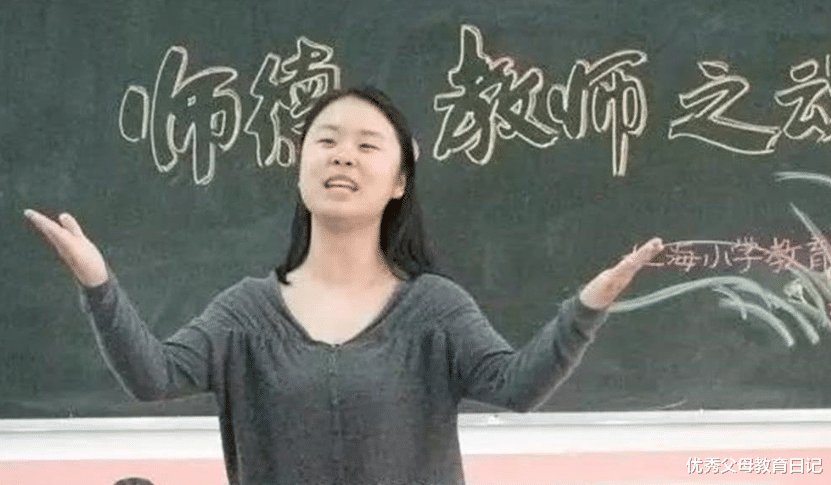 师德 教师之
海小学教育
优秀父母教育日记